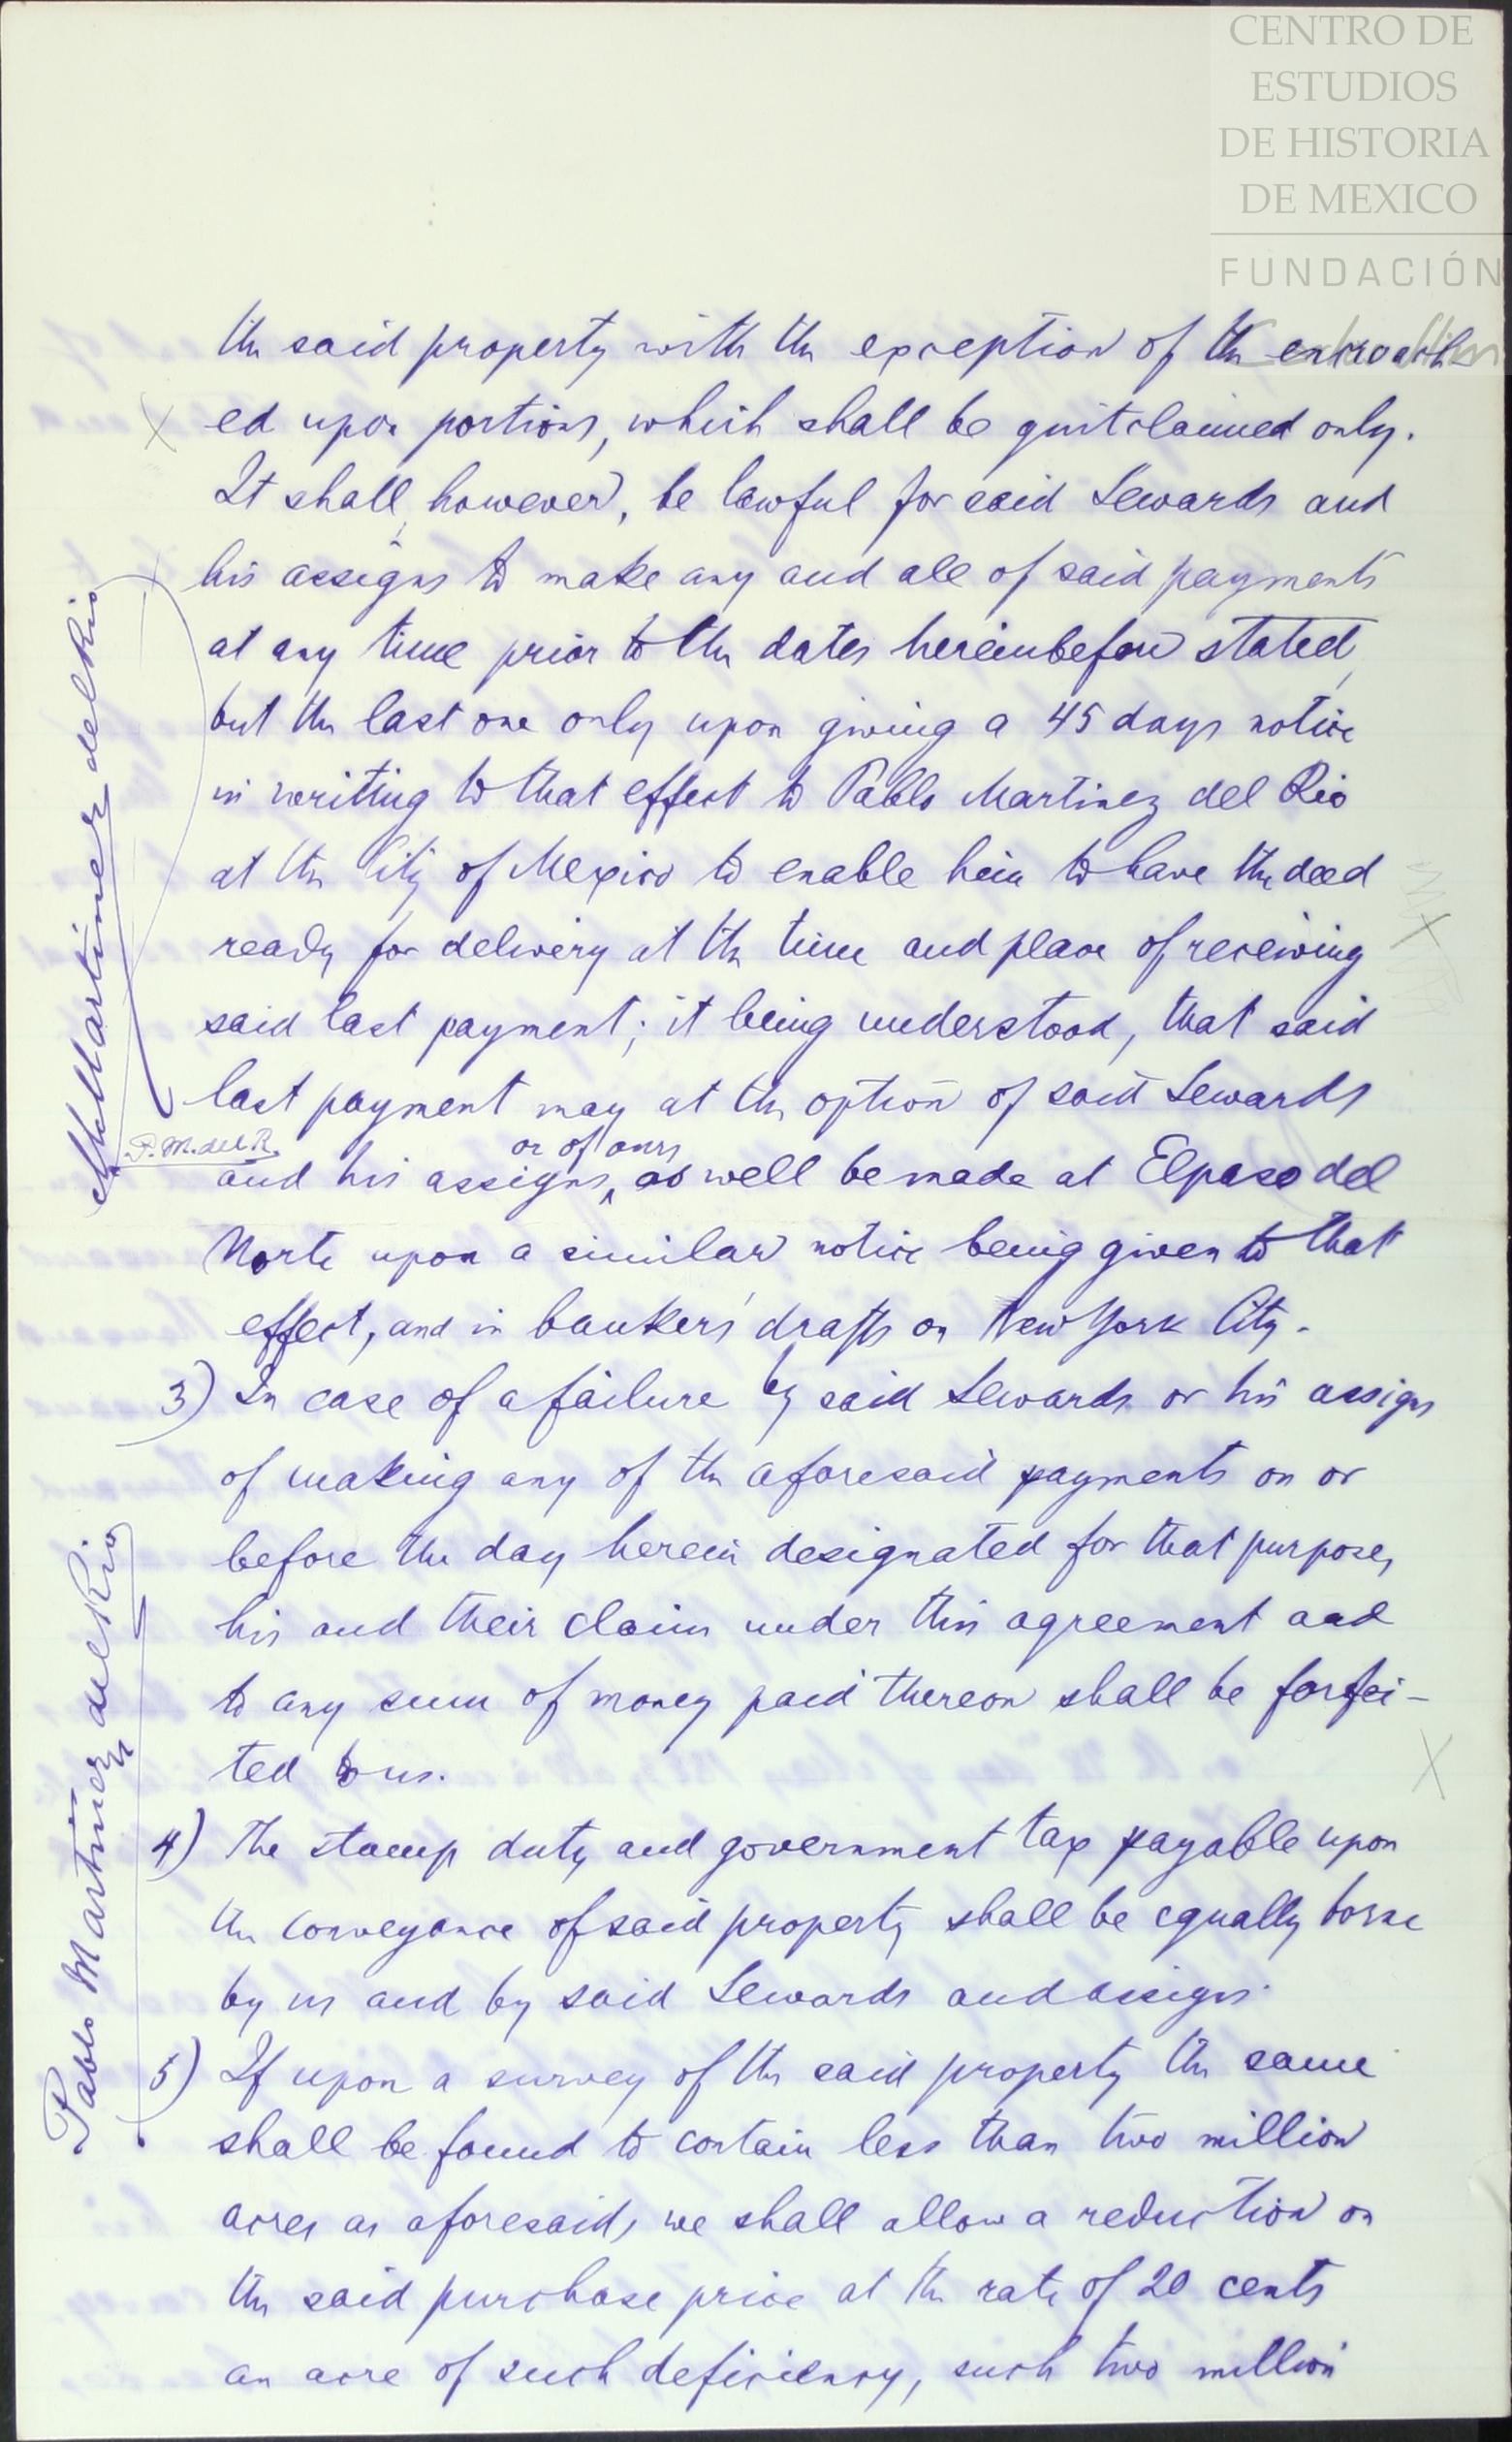 CENTRO DE
ESTUDIOS
DE HISTORIA
DE MEXICO
FUNDACIÓN
the said property with the exception of the encroach-
ed upon portions, which shall be quitclaimed only.
It shall, however, be lawful for said Sewards and
his assigns to make any and all of said payments
at any time prior to the dates hereinbefore stated,
but the last one only upon giving a 45 days notice
in writing to that effect to Pablo Martinez del Rio
at the City of Mexico to enable him to have the deed
ready for delivery at the time and place of receiving
said last payment; it being understood, that said
last payment may at the option of said Sewards
P. M. del R.
or of ours
and his assigns, as well be made at Elpaso del
Norte upon a similar notice being given to that
effect, and in bankers' drafts on New York City.
3) In case of a failure by said Sewards or his assigns
of making any of the aforesaid payments on or
before the day herein designated for that purpose,
his and their claim under this agreement and
to any sum of money paid thereon shall be forfei-
ted to us.
4) The stamp duty and government tax payable upon
the conveyance of said property shall be equally borne
by us and by said Sewards and assigns.
5) If upon a survey of the said property the same
shall be found to contain less than two million
acres as aforesaid, we shall allow a reduction on
the said purchase price at the rate of 20 cents
an acre of such deficiency, such two million
Martinez del Rio
Pablo Martinez del Rio